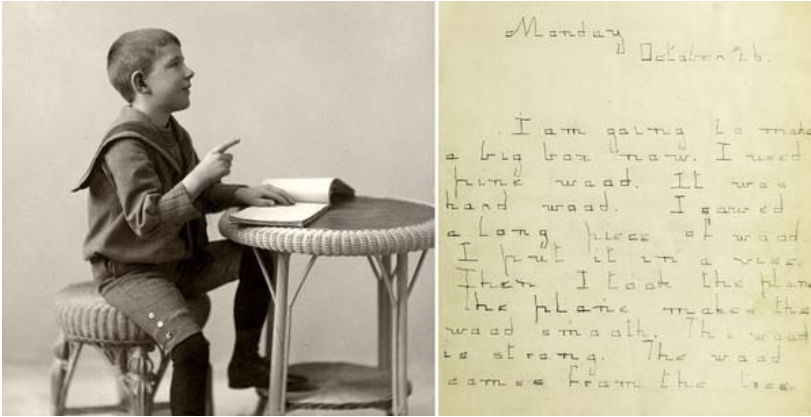 Monday
October 26.
I am going to make
a big box now. I used
pine wood. It was
hard wood. I sawed
a long piece of wood
I put it in a vise.
Then I took the plane
The plane makes the
wood smooth. The wood
is strong. The wood
comes from the tree.